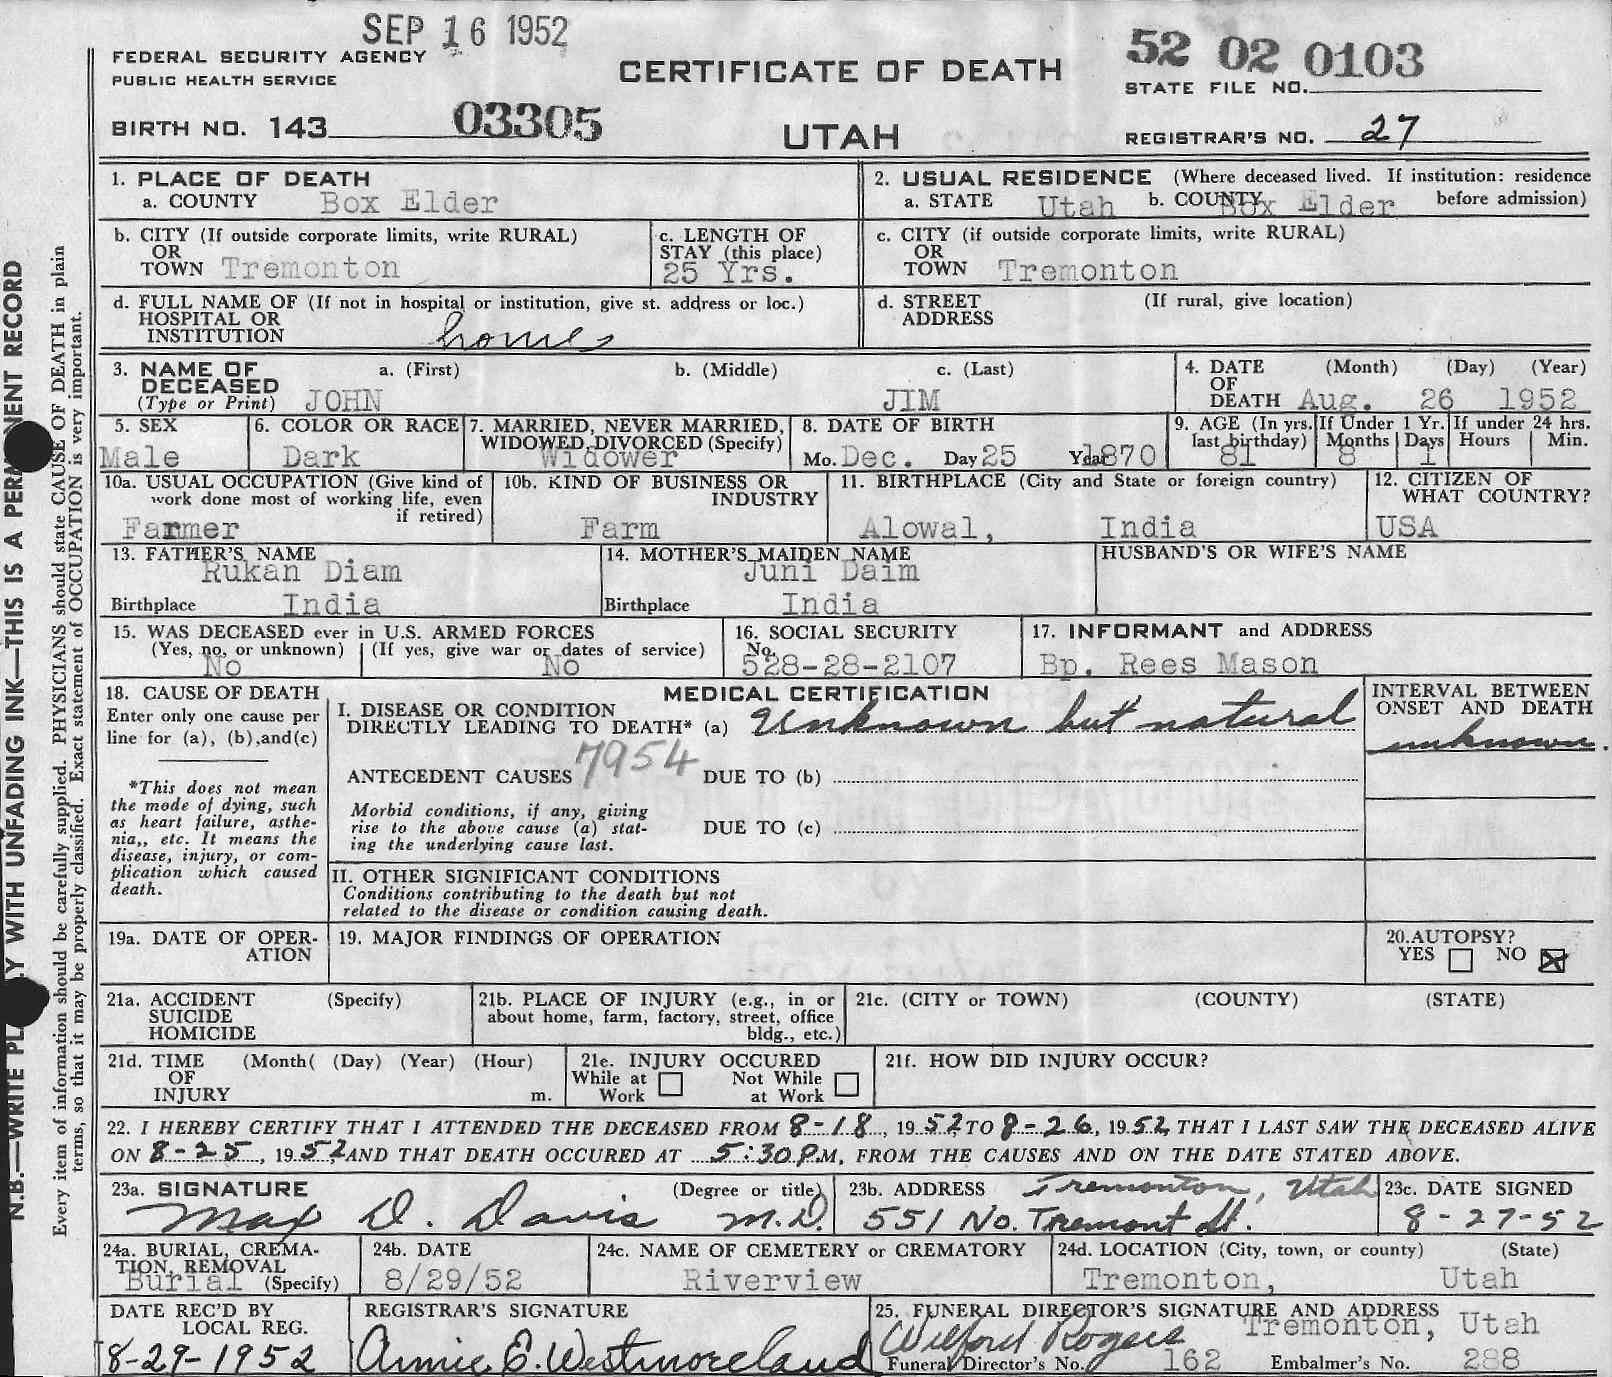 SEP 16 1952
FEDERAL SECURITY AGENCY
PUBLIC HEALTH SERVICE
CERTIFICATE OF DEATH
52 02 0103
STATE FILE NO.
BIRTH NO. 143 03305
UTAH
REGISTRAR'S NO. 27
1. PLACE OF DEATH
a. COUNTY Box Elder
2. USUAL RESIDENCE (Where deceased lived. If institution: residence before admission)
a. STATE Utah b. COUNTY Box Elder
b. CITY (If outside corporate limits, write RURAL)
OR
TOWN Tremonton
c. LENGTH OF
STAY (this place)
25 Yrs.
c. CITY (if outside corporate limits, write RURAL)
OR
TOWN Tremonton
d. FULL NAME OF (If not in hospital or institution, give st. address or loc.)
HOSPITAL OR
INSTITUTION
d. STREET (If rural, give location)
ADDRESS
3. NAME OF a. (First) b. (Middle) c. (Last)
DECEASED
(Type or Print) JOHN JIM
4. DATE (Month) (Day) (Year)
OF
DEATH Aug. 26 1952
5. SEX
Male
6. COLOR OR RACE
Dark
7. MARRIED, NEVER MARRIED,
WIDOWED, DIVORCED (Specify)
Widower
8. DATE OF BIRTH
Mo. Dec. Day 25 Year 1870
9. AGE (In yrs. last birthday) 81
If Under 1 Yr. Months 8 Days 1
If under 24 hrs. Hours Min.
10a. USUAL OCCUPATION (Give kind of
work done most of working life, even
if retired)
Farmer
10b. KIND OF BUSINESS OR
INDUSTRY
Farm
11. BIRTHPLACE (City and State or foreign country)
Alowal, India
12. CITIZEN OF
WHAT COUNTRY?
USA
13. FATHER'S NAME
Rukan Diam
Birthplace India
14. MOTHER'S MAIDEN NAME
Juni Daim
Birthplace India
HUSBAND'S OR WIFE'S NAME
15. WAS DECEASED ever in U.S. ARMED FORCES
(Yes, no, or unknown) (If yes, give war or dates of service)
No No
16. SOCIAL SECURITY
No.
528-28-2107
17. INFORMANT and ADDRESS
Bp. Rees Mason
18. CAUSE OF DEATH
Enter only one cause per
line for (a), (b), and (c)
*This does not mean
the mode of dying, such
as heart failure, asthe-
nia,, etc. It means the
disease, injury, or com-
plication which caused
death.
MEDICAL CERTIFICATION
I. DISEASE OR CONDITION
DIRECTLY LEADING TO DEATH* (a) Unknown but natural
ANTECEDENT CAUSES 7954 DUE TO (b)
Morbid conditions, if any, giving
rise to the above cause (a) stat-
ing the underlying cause last.
DUE TO (c)
II. OTHER SIGNIFICANT CONDITIONS
Conditions contributing to the death but not
related to the disease or condition causing death.
INTERVAL BETWEEN
ONSET AND DEATH
unknown.
19a. DATE OF OPER-
ATION
19. MAJOR FINDINGS OF OPERATION
20. AUTOPSY?
YES NO
21a. ACCIDENT (Specify)
SUICIDE
HOMICIDE
21b. PLACE OF INJURY (e.g., in or
about home, farm, factory, street, office
bldg., etc.)
21c. (CITY or TOWN) (COUNTY) (STATE)
21d. TIME (Month( (Day) (Year) (Hour)
OF
INJURY m.
21e. INJURY OCCURED
While at Work Not While at Work
21f. HOW DID INJURY OCCUR?
22. I HEREBY CERTIFY THAT I ATTENDED THE DECEASED FROM 8-18, 1952, TO 8-26, 1952, THAT I LAST SAW THE DECEASED ALIVE
ON 8-25, 1952, AND THAT DEATH OCCURED AT 5:30 P.M, FROM THE CAUSES AND ON THE DATE STATED ABOVE.
23a. SIGNATURE (Degree or title)
Max D. Davis M.D.
23b. ADDRESS Tremonton, Utah
551 No. Tremont St.
23c. DATE SIGNED
8-27-52
24a. BURIAL, CREMA-
TION, REMOVAL
Burial (Specify)
24b. DATE
8/29/52
24c. NAME OF CEMETERY or CREMATORY
Riverview
24d. LOCATION (City, town, or county) (State)
Tremonton, Utah
DATE REC'D BY
LOCAL REG.
8-29-1952
REGISTRAR'S SIGNATURE
Annie E. Westmoreland
25. FUNERAL DIRECTOR'S SIGNATURE AND ADDRESS
Wilford Rogers Tremonton, Utah
Funeral Director's No. 162 Embalmer's No. 288
N.B.—WRITE WITH UNFADING INK—THIS IS A RECORD
Every item of information should be carefully supplied. PHYSICIANS should state CAUSE OF DEATH in plain
terms, so that it may be properly classified. Exact statement of OCCUPATION is very important.